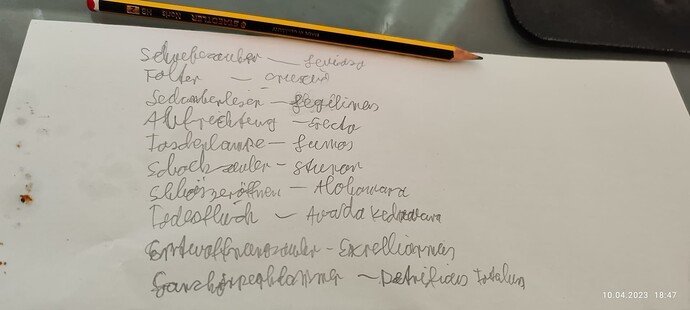 STAEDTLER Noris HB
Schwebezauber — Leviosa
Folter — Crucio
Gedankenlesen — Legilimens
Aufrichtung — Erecto
Taschenlampe — Lumos
Schockzauber — Stupor
Schlösseröffnen — Alohomora
Todesfluch — Avada Kedavara
Entwaffnungszauber — Expelliarmus
Ganzkörperklammer — Petrificus Totalus
10.04.2023 18:47